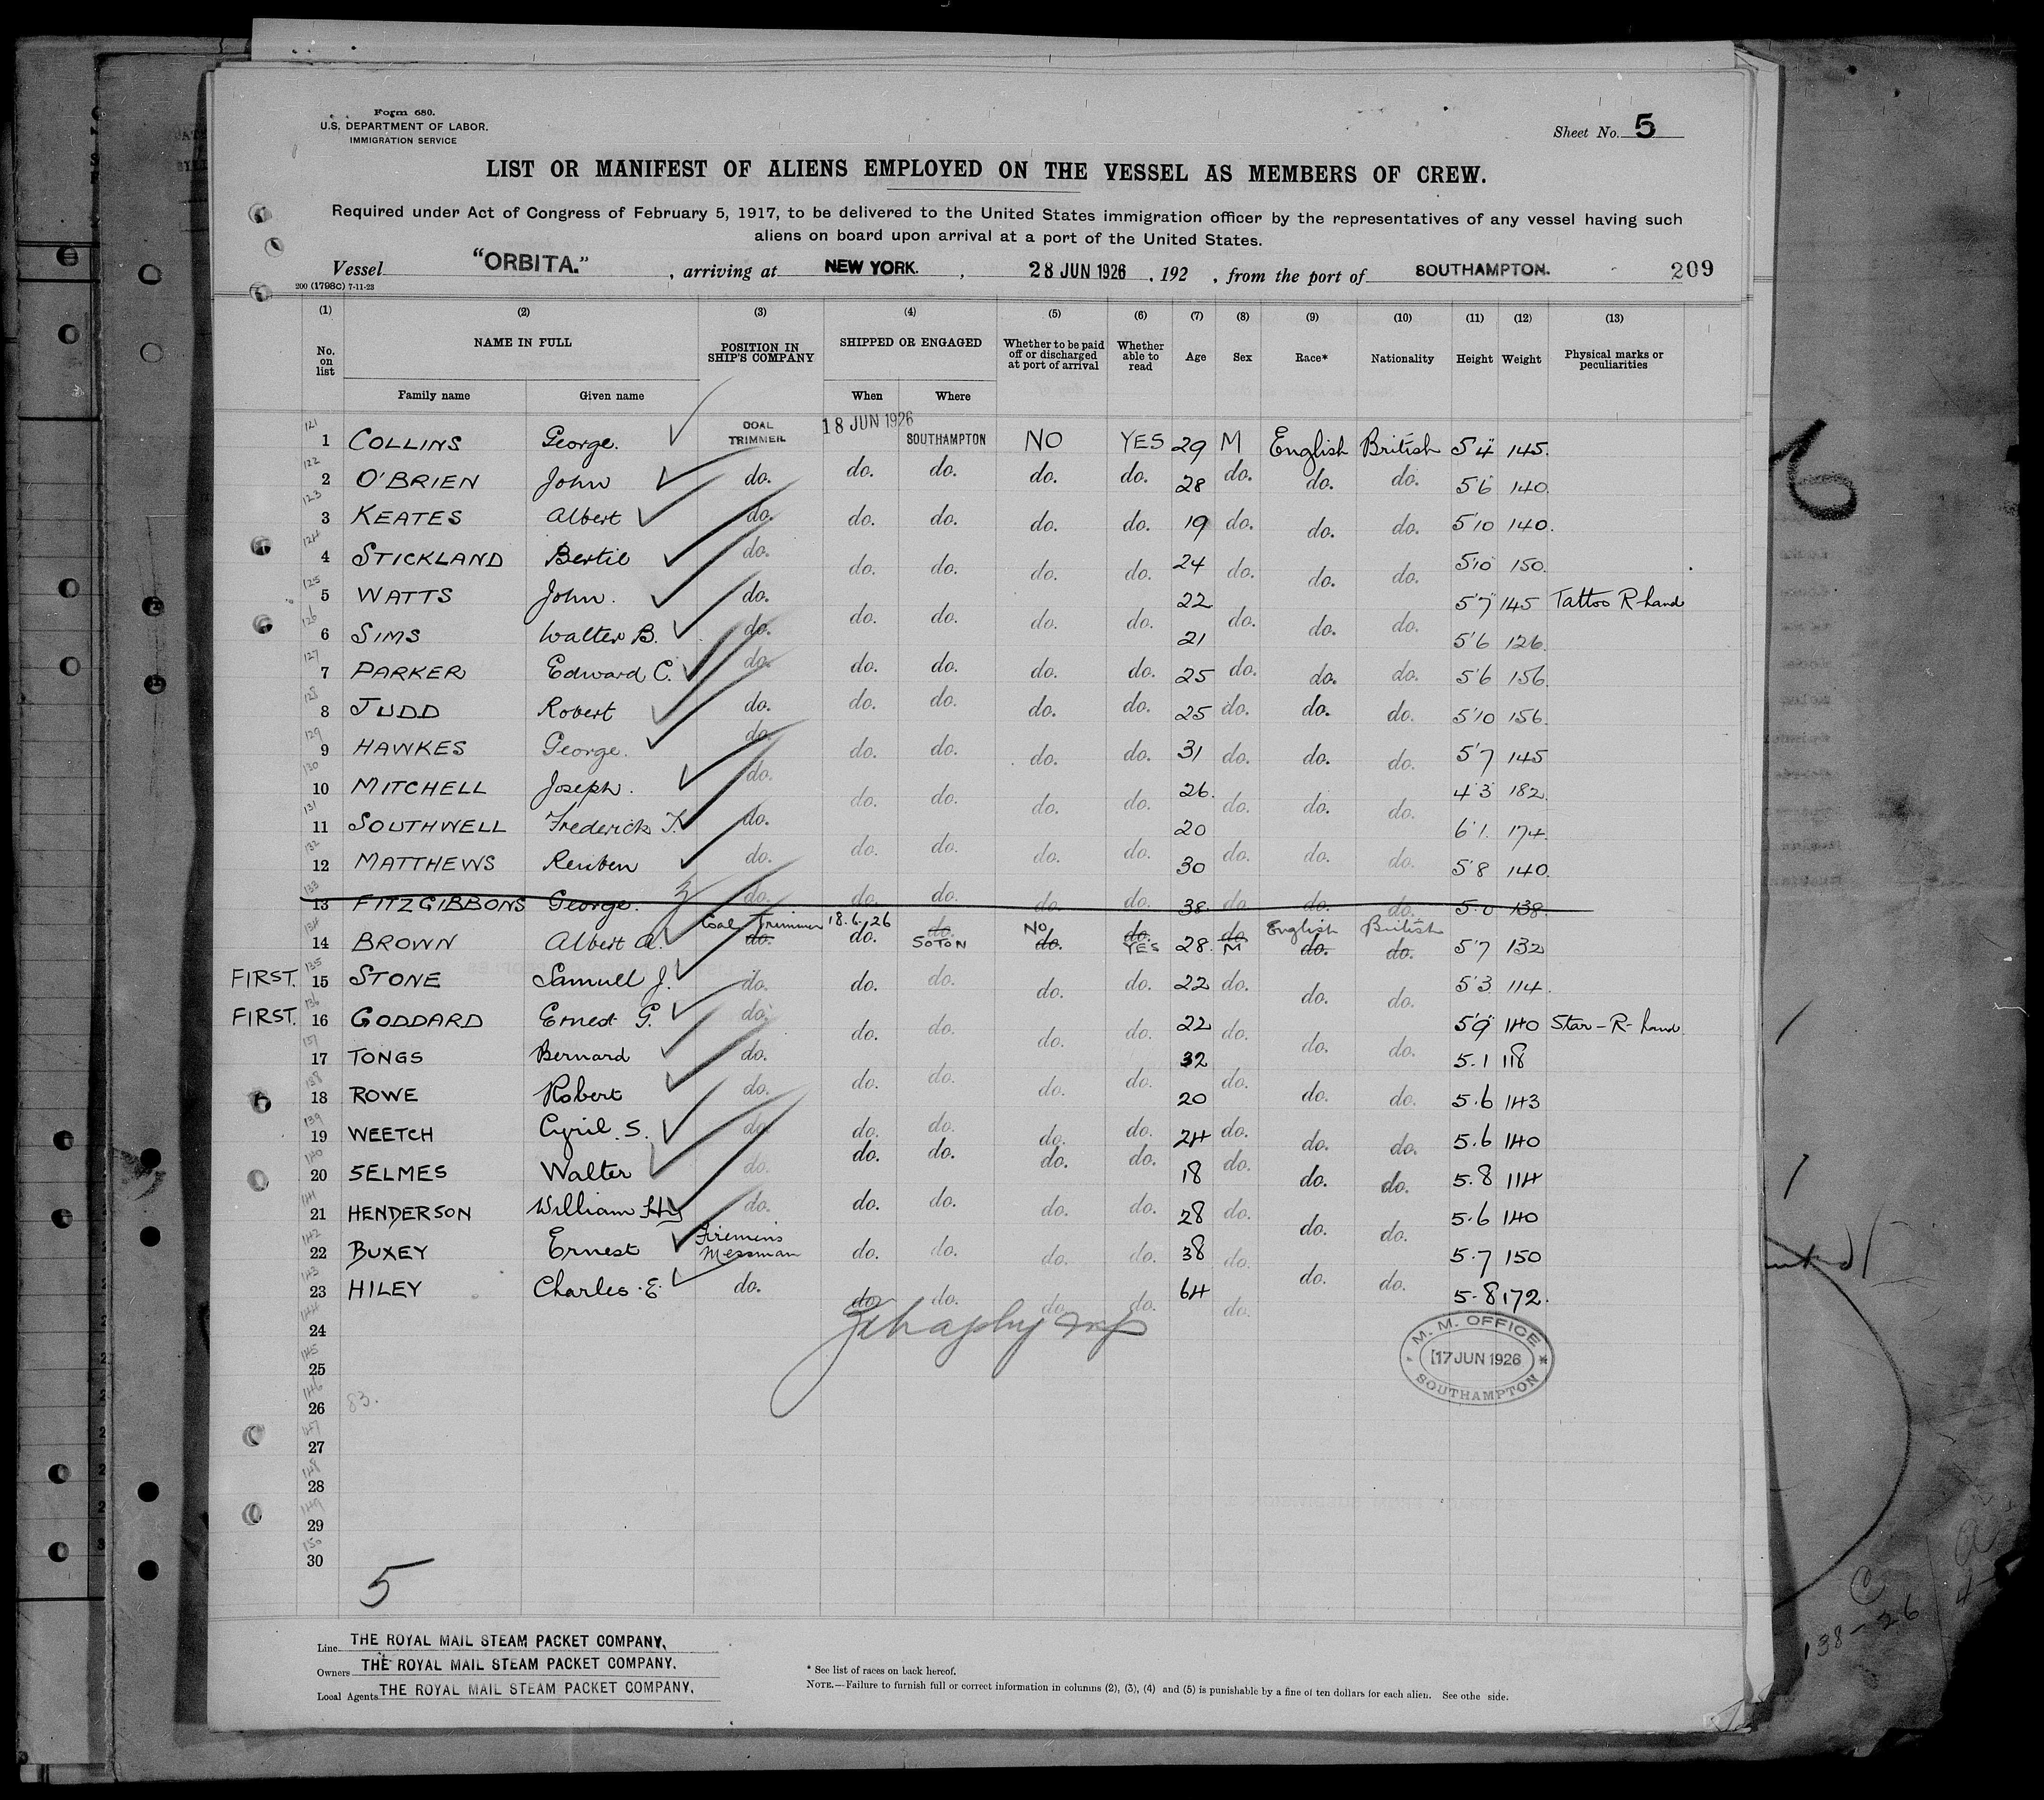 Form 680.
U.S. DEPARTMENT OF LABOR.
IMMIGRATION SERVICE
Sheet No. 5
LIST OR MANIFEST OF ALIENS EMPLOYED ON THE VESSEL AS MEMBERS OF CREW.
Required under Act of Congress of February 5, 1917, to be delivered to the United States immigration officer by the representatives of any vessel having such
aliens on board upon arrival at a port of the United States.
Vessel "ORBITA." , arriving at NEW YORK. , 28 JUN 1926 , 192 , from the port of SOUTHAMPTON. 209
200 (1798C) 7-11-23
(1) (2) (3) (4) (5) (6) (7) (8) (9) (10) (11) (12) (13)
No. on list NAME IN FULL POSITION IN SHIP'S COMPANY SHIPPED OR ENGAGED Whether to be paid off or discharged at port of arrival Whether able to read Age Sex Race* Nationality Height Weight Physical marks or peculiarities
Family name Given name When Where
121 1 COLLINS George. COAL TRIMMER 18 JUN 1926 SOUTHAMPTON NO YES 29 M English British 5'4" 145.
122 2 O'BRIEN John do. do. do. do. do. 28 do. do. do. 5'6 140.
123 3 KEATES Albert do. do. do. do. do. 19 do. do. do. 5'10 140.
124 4 STICKLAND Bertie do. do. do. do. do. 24 do. do. do. 5'10 150.
125 5 WATTS John. do. do. do. do. do. 22 do. do. do. 5'7" 145 Tattoo R-hand
126 6 SIMS Walter B. do. do. do. do. do. 21 do. do. do. 5'6 126.
127 7 PARKER Edward C. do. do. do. do. do. 25 do. do. do. 5'6 156.
128 8 JUDD Robert do. do. do. do. do. 25 do. do. do. 5'10 156.
129 9 HAWKES George. do. do. do. do. do. 31 do. do. do. 5'7 145
130 10 MITCHELL Joseph. do. do. do. do. do. 26. do. do. do. 4'3 182.
131 11 SOUTHWELL Frederick T. do. do. do. do. do. 20 do. do. do. 6'1. 174.
132 12 MATTHEWS Reuben do. do. do. do. do. 30 do. do. do. 5'8 140.
133 13 FITZGIBBONS George. do. do. do. do. do. 38. do. do. do. 5.0 138.
134 14 BROWN Albert A. Coal Trimmer do. 18.6.26 do. do. SOTON No do. do. YES 28. do M English do. British do. 5'7 132
FIRST. 135 15 STONE Samuell J. do. do. do. do. do. 22 do. do. do. 5'3 114.
FIRST. 136 16 GODDARD Ernest G. do. do. do. do. do. 22 do. do. do. 5'9" 140 Star-R-hand
137 17 TONGS Bernard do. do. do. do. do. 32 do. do. do. 5.1 118
138 18 ROWE Robert do. do. do. do. do. 20 do. do. do. 5.6 143
139 19 WEETCH Cyril. S. do. do. do. do. do. 24 do. do. do. 5.6 140
140 20 SELMES Walter do. do. do. do. do. 18 do. do. do. 5.8 114
141 21 HENDERSON William Hy do. do. do. do. do. 28 do. do. do. 5.6 140
142 22 BUXEY Ernest Firemens Messman do. do. do. do. 38 do. do. do. 5.7 150
143 23 HILEY Charles. E. do. do. do. do. do. 64 do. do. do. 5.8 172.
144 24
145 25
146 26 83.
147 27
148 28
149 29
150 30
M. M. OFFICE
17 JUN 1926
SOUTHAMPTON
5
Line THE ROYAL MAIL STEAM PACKET COMPANY.
Owners THE ROYAL MAIL STEAM PACKET COMPANY.
Local Agents THE ROYAL MAIL STEAM PACKET COMPANY.
* See list of races on back hereof.
NOTE.—Failure to furnish full or correct information in columns (2), (3), (4) and (5) is punishable by a fine of ten dollars for each alien. See othe side.
6
138-26